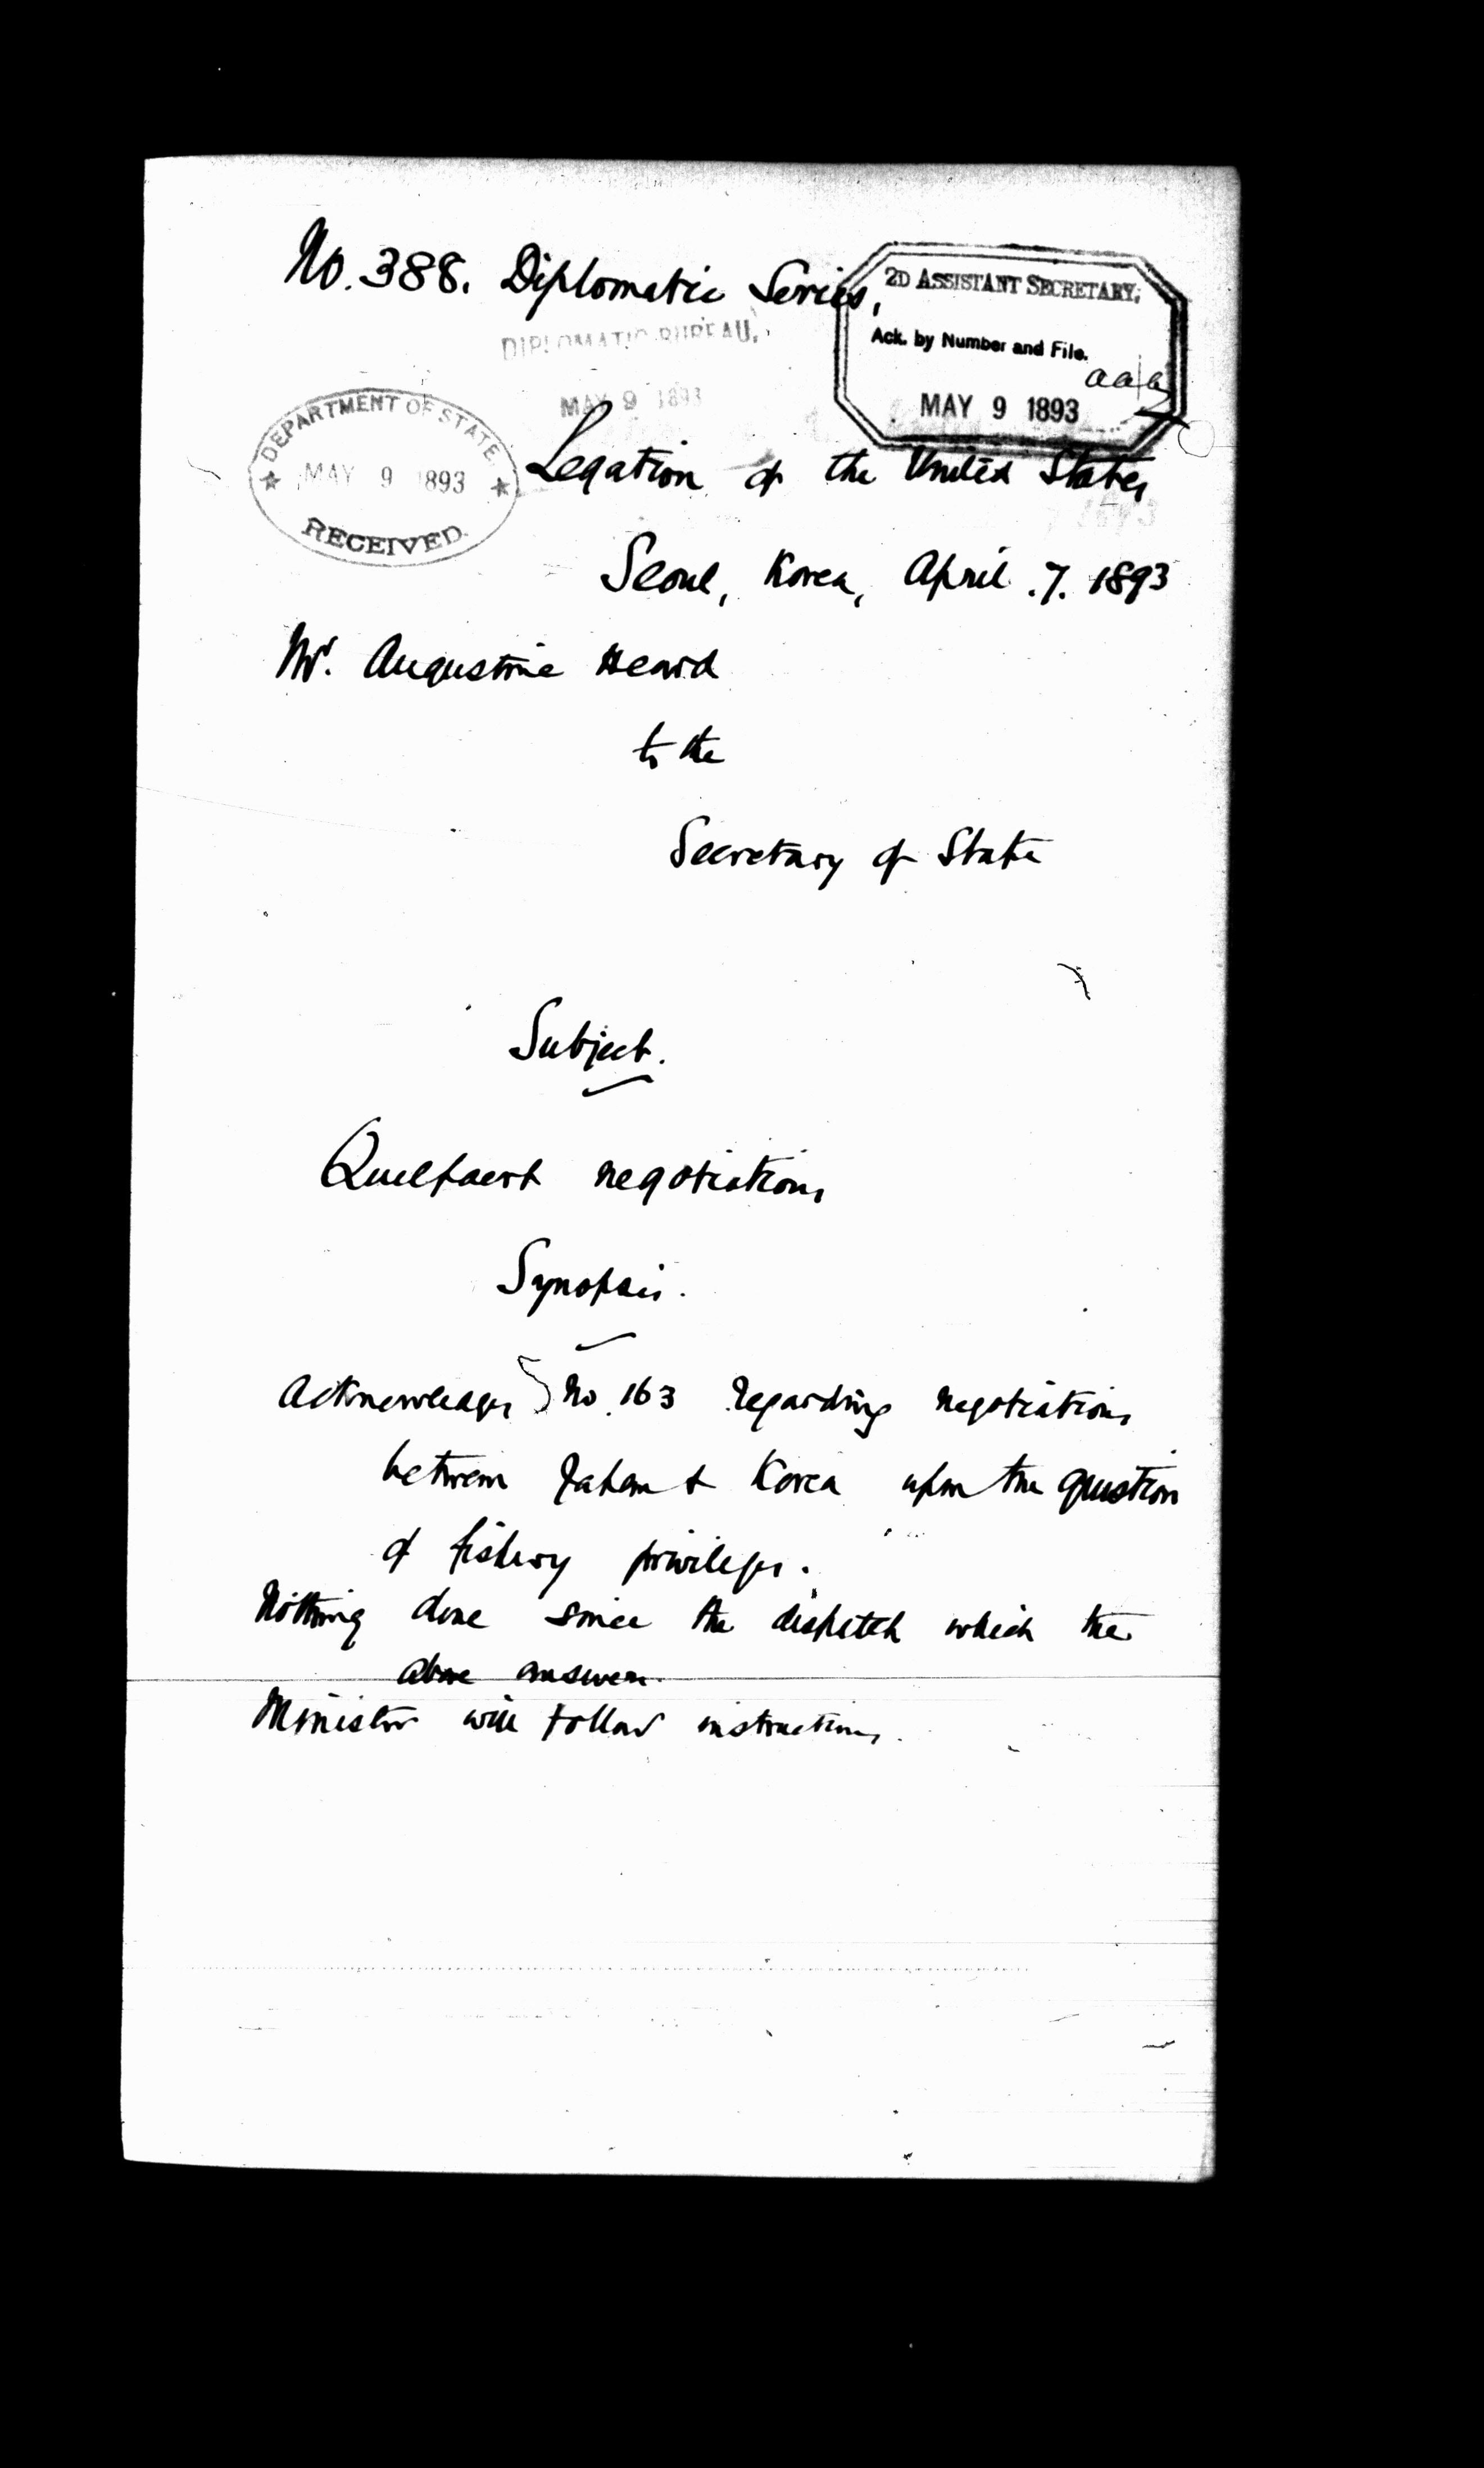 No. 388. Diplomatic Series,
2D ASSISTANT SECRETARY,
Ack. by Number and File.
aaa
MAY 9 1893
DIPLOMATIC BUREAU,
MAY 9 1893
DEPARTMENT OF STATE
MAY 9 1893
RECEIVED.
Legation of the United States
Seoul, Korea, April .7. 1893
Mr. Augustine Heard
to the
Secretary of State
Subject.
Quelpaert negotiations
Synopsis.
Acknowledges No. 163 regarding negotiations
between Japan & Korea upon the question
of fishery privileges.
Nothing done since the dispatch which the
above answers.
Minister will follow instructions.